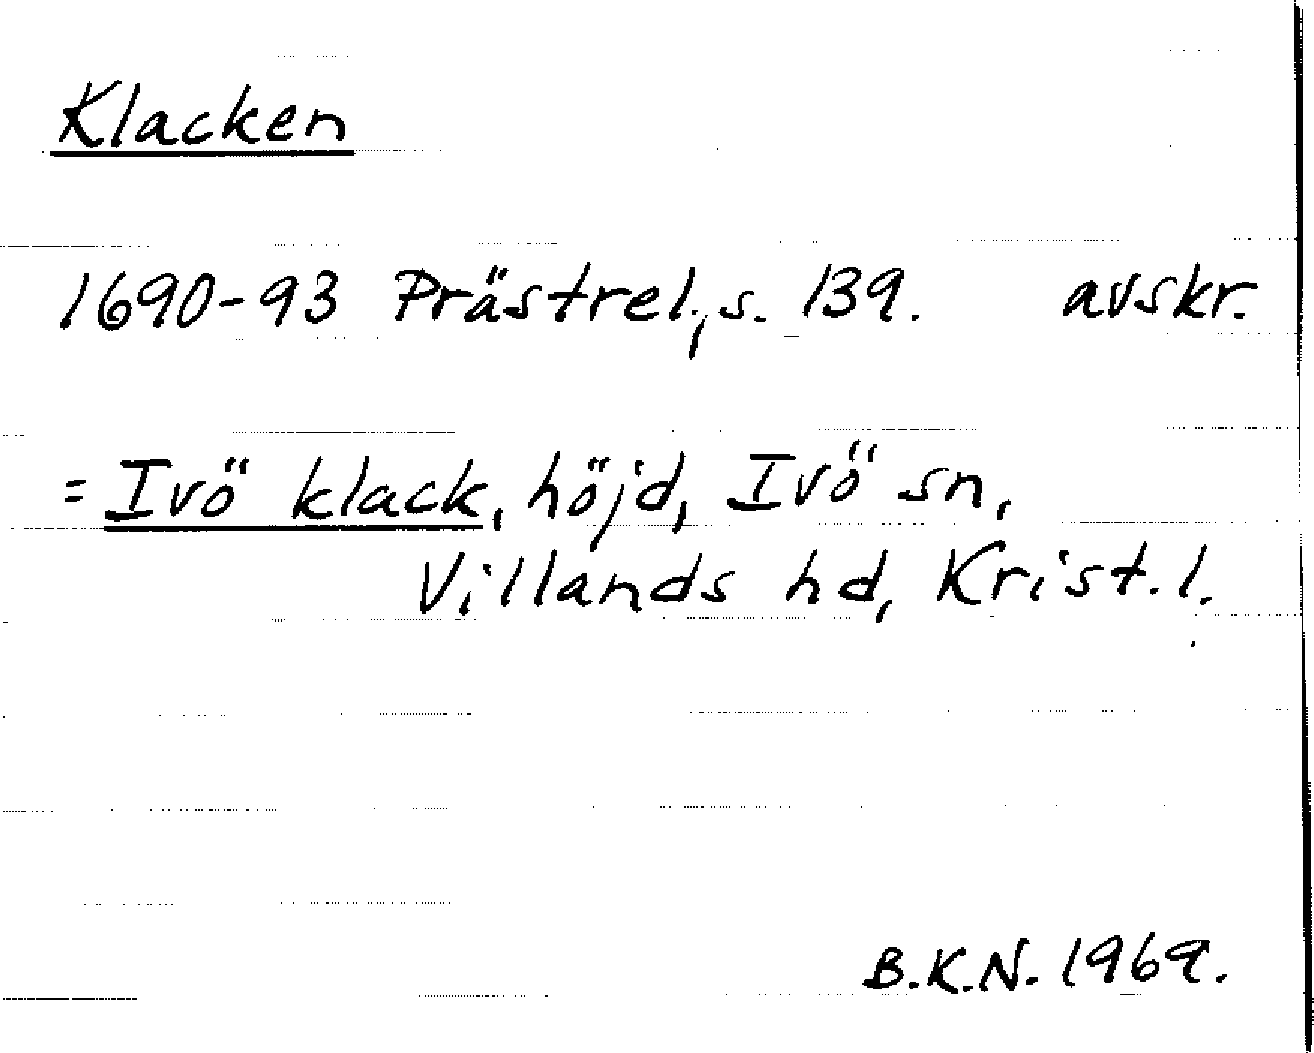 Klacken
1690-93 Prästrel., s. 139. avskr.
= Ivö klack, höjd, Ivö sn,
Villands hd, Krist. l.
B.K.N. 1969.